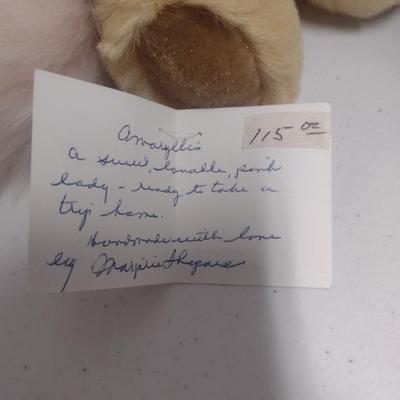 Amaryllis
115 00
A sweet, lovable, pink
lady - ready to take a
trip home.
Handmade with love
by Marjorie